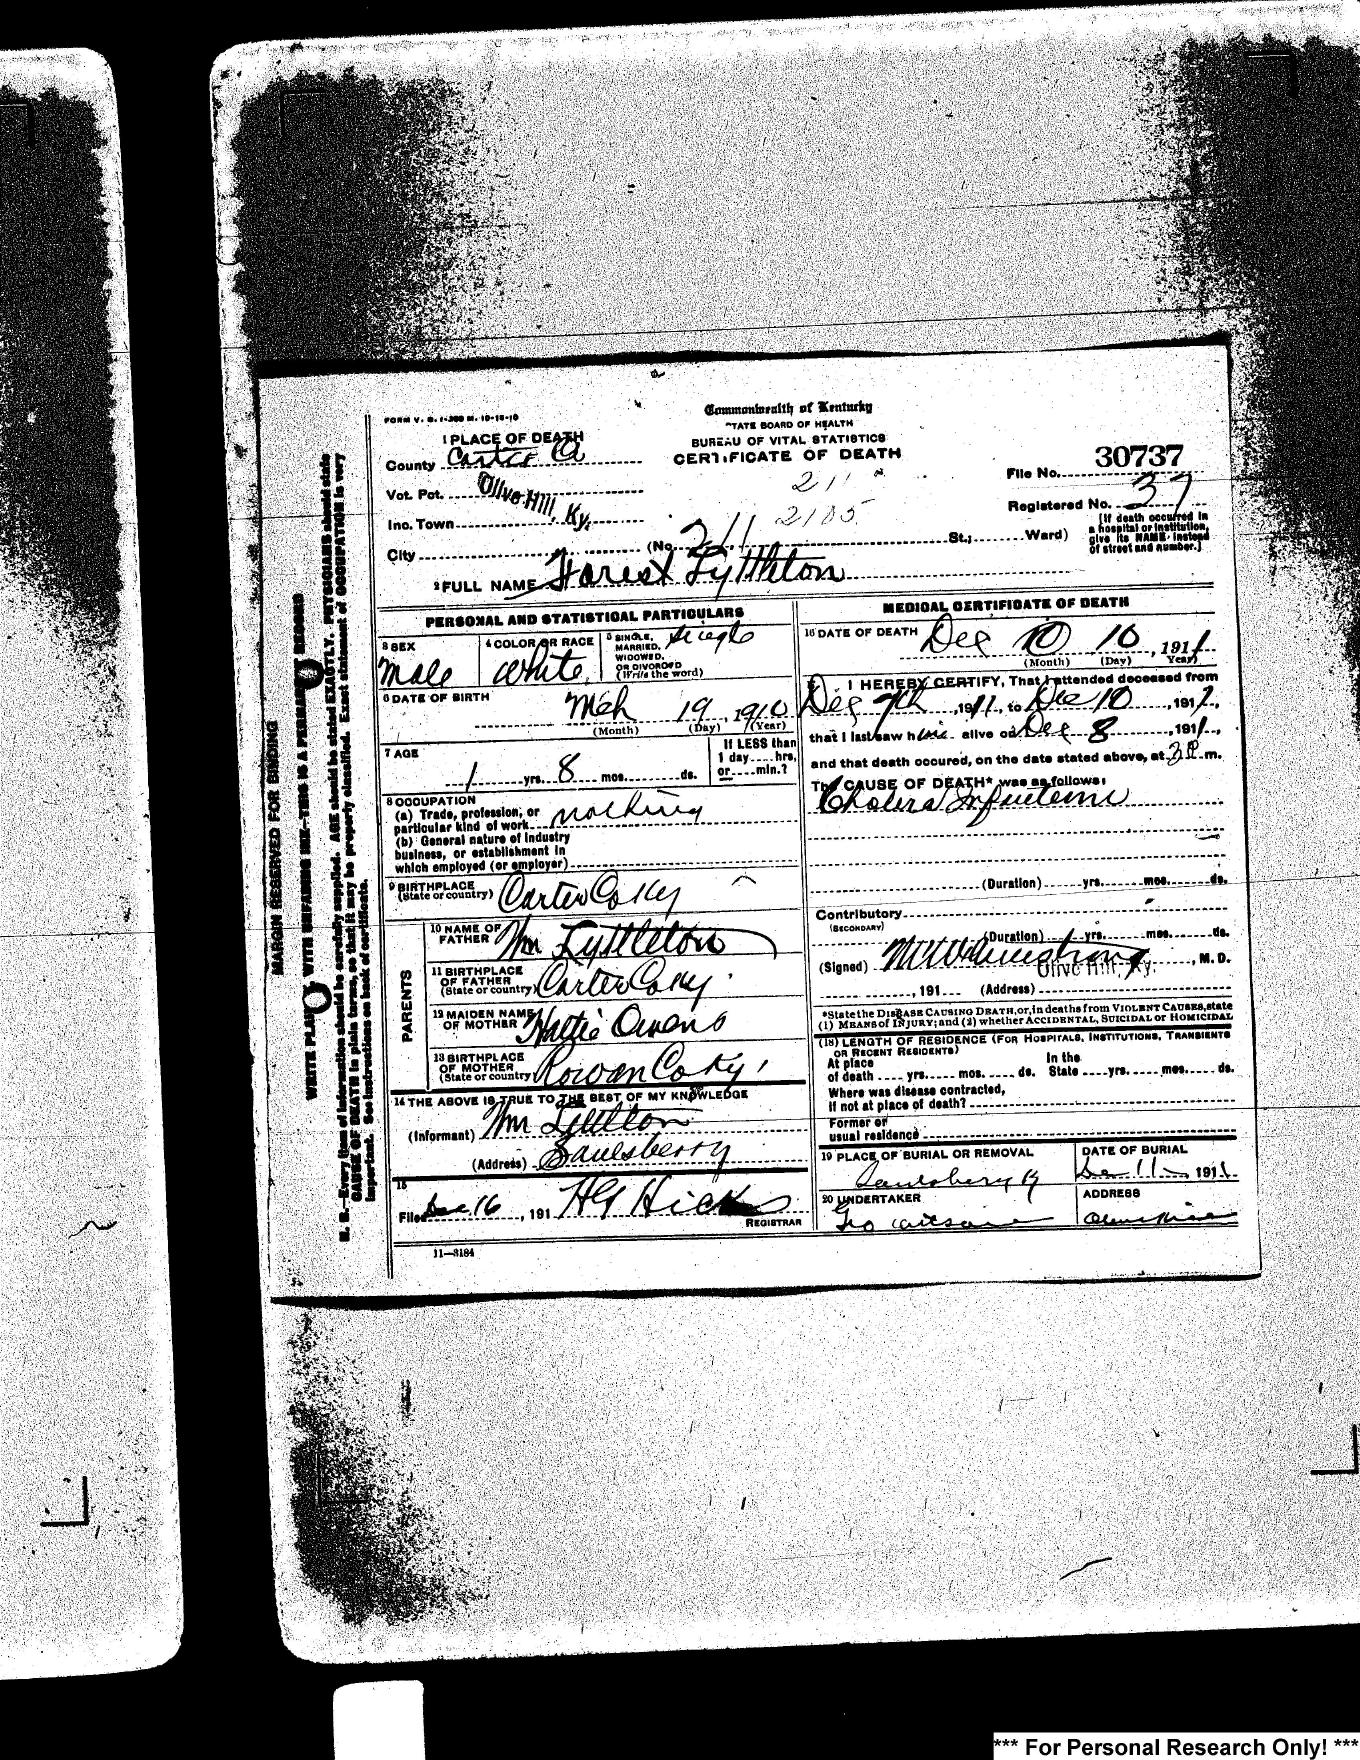 FORM V. S. 1-300 M. 10-15-10
Commonwealth of Kentucky
STATE BOARD OF HEALTH
BUREAU OF VITAL STATISTICS
CERTIFICATE OF DEATH
1 PLACE OF DEATH
County Carter Co
Vot. Pct. Olive Hill, Ky.
Inc. Town
City
(No. 211 St.; Ward)
211
2185
File No. 30737
Registered No. 37
[If death occurred in
a hospital or institution,
give its NAME instead
of street and number.]
2 FULL NAME Forest Lyttleton
PERSONAL AND STATISTICAL PARTICULARS
3 SEX
Male
4 COLOR OR RACE
White
5 SINGLE,
MARRIED,
WIDOWED,
OR DIVORCED
(Write the word)
Single
6 DATE OF BIRTH
Mch 19, 1910
(Month) (Day) (Year)
7 AGE
1 yrs. 8 mos. ds.
If LESS than
1 day....hrs.
or....min.?
8 OCCUPATION
(a) Trade, profession, or
particular kind of work nothing
(b) General nature of industry
business, or establishment in
which employed (or employer)
9 BIRTHPLACE
(State or country) Carter Co Ky
PARENTS
10 NAME OF
FATHER Wm Lyttleton
11 BIRTHPLACE
OF FATHER
(State or country) Carter Co Ky.
12 MAIDEN NAME
OF MOTHER Hattie Owens
13 BIRTHPLACE
OF MOTHER
(State or country) Rowan Co Ky.
14 THE ABOVE IS TRUE TO THE BEST OF MY KNOWLEDGE
(Informant) Wm Lyttleton
(Address) Saulsberry
15
Filed Dec 16, 191 HG Hicks
REGISTRAR
11—3184
MEDICAL CERTIFICATE OF DEATH
16 DATE OF DEATH
Dec 10 10, 1911
(Month) (Day) Year)
I HEREBY CERTIFY, That I attended deceased from
Dec 7th, 1911, to Dec 10, 191
that I last saw him alive on Dec 8, 1911,
and that death occured, on the date stated above, at 3 P. m.
The CAUSE OF DEATH* was as follows:
Cholera Infantum
(Duration) yrs. mos. ds.
Contributory
(SECONDARY)
(Duration) yrs. mos. ds.
(Signed) Armstrong, M.D.
Olive Hill, Ky.
, 191 (Address)
*State the DISEASE CAUSING DEATH, or, in deaths from VIOLENT CAUSES, state
(1) MEANS of INJURY; and (2) whether ACCIDENTAL, SUICIDAL or HOMICIDAL
(18) LENGTH OF RESIDENCE (FOR HOSPITALS, INSTITUTIONS, TRANSIENTS
OR RECENT RESIDENTS)
At place In the
of death .... yrs. .... mos. .... ds. State .... yrs. .... mos. .... ds.
Where was disease contracted,
If not at place of death?
Former or
usual residence
19 PLACE OF BURIAL OR REMOVAL
Saulsberry Ky
DATE OF BURIAL
Dec 11 1911
20 UNDERTAKER
Geo Wilson
ADDRESS
Olive Hill
MARGIN RESERVED FOR BINDING
WRITE PLAINLY WITH UNFADING INK—THIS IS A PERMANENT RECORD
N. B.—Every item of information should be carefully supplied. AGE should be stated EXACTLY. PHYSICIANS should state
CAUSE OF DEATH in plain terms, so that it may be properly classified. Exact statement of OCCUPATION is very
important. See instructions on back of certificate.
*** For Personal Research Only! ***